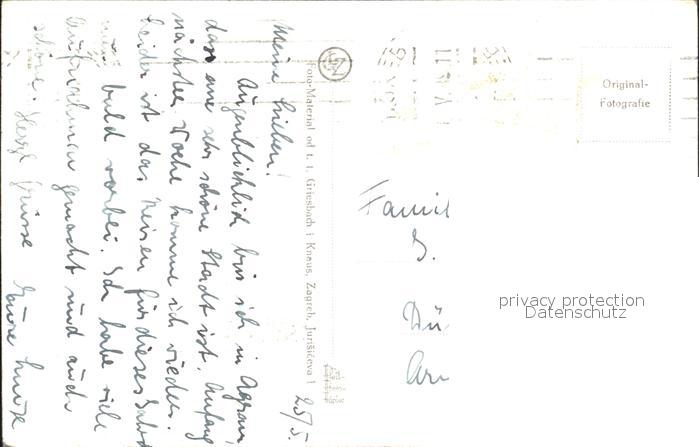 25/5.
Meine Lieben!
Augenblicklich bin ich in Agram,
dass eine sehr schöne Stadt ist. Anfang
nächster Woche komme ich wieder.
Leider ist das Reisen für dieses Jahr
nun bald vorbei. Ich habe viele
Aufnahmen gemacht und auch
schöne. Herzl Grüsse Eure Luise
Foto-Material od t. t. Griesbach i Knaus, Zagreb, Jurišićeva 1
Original-
Fotografie
Famil
G.
Dü
privacy protection
Datenschutz